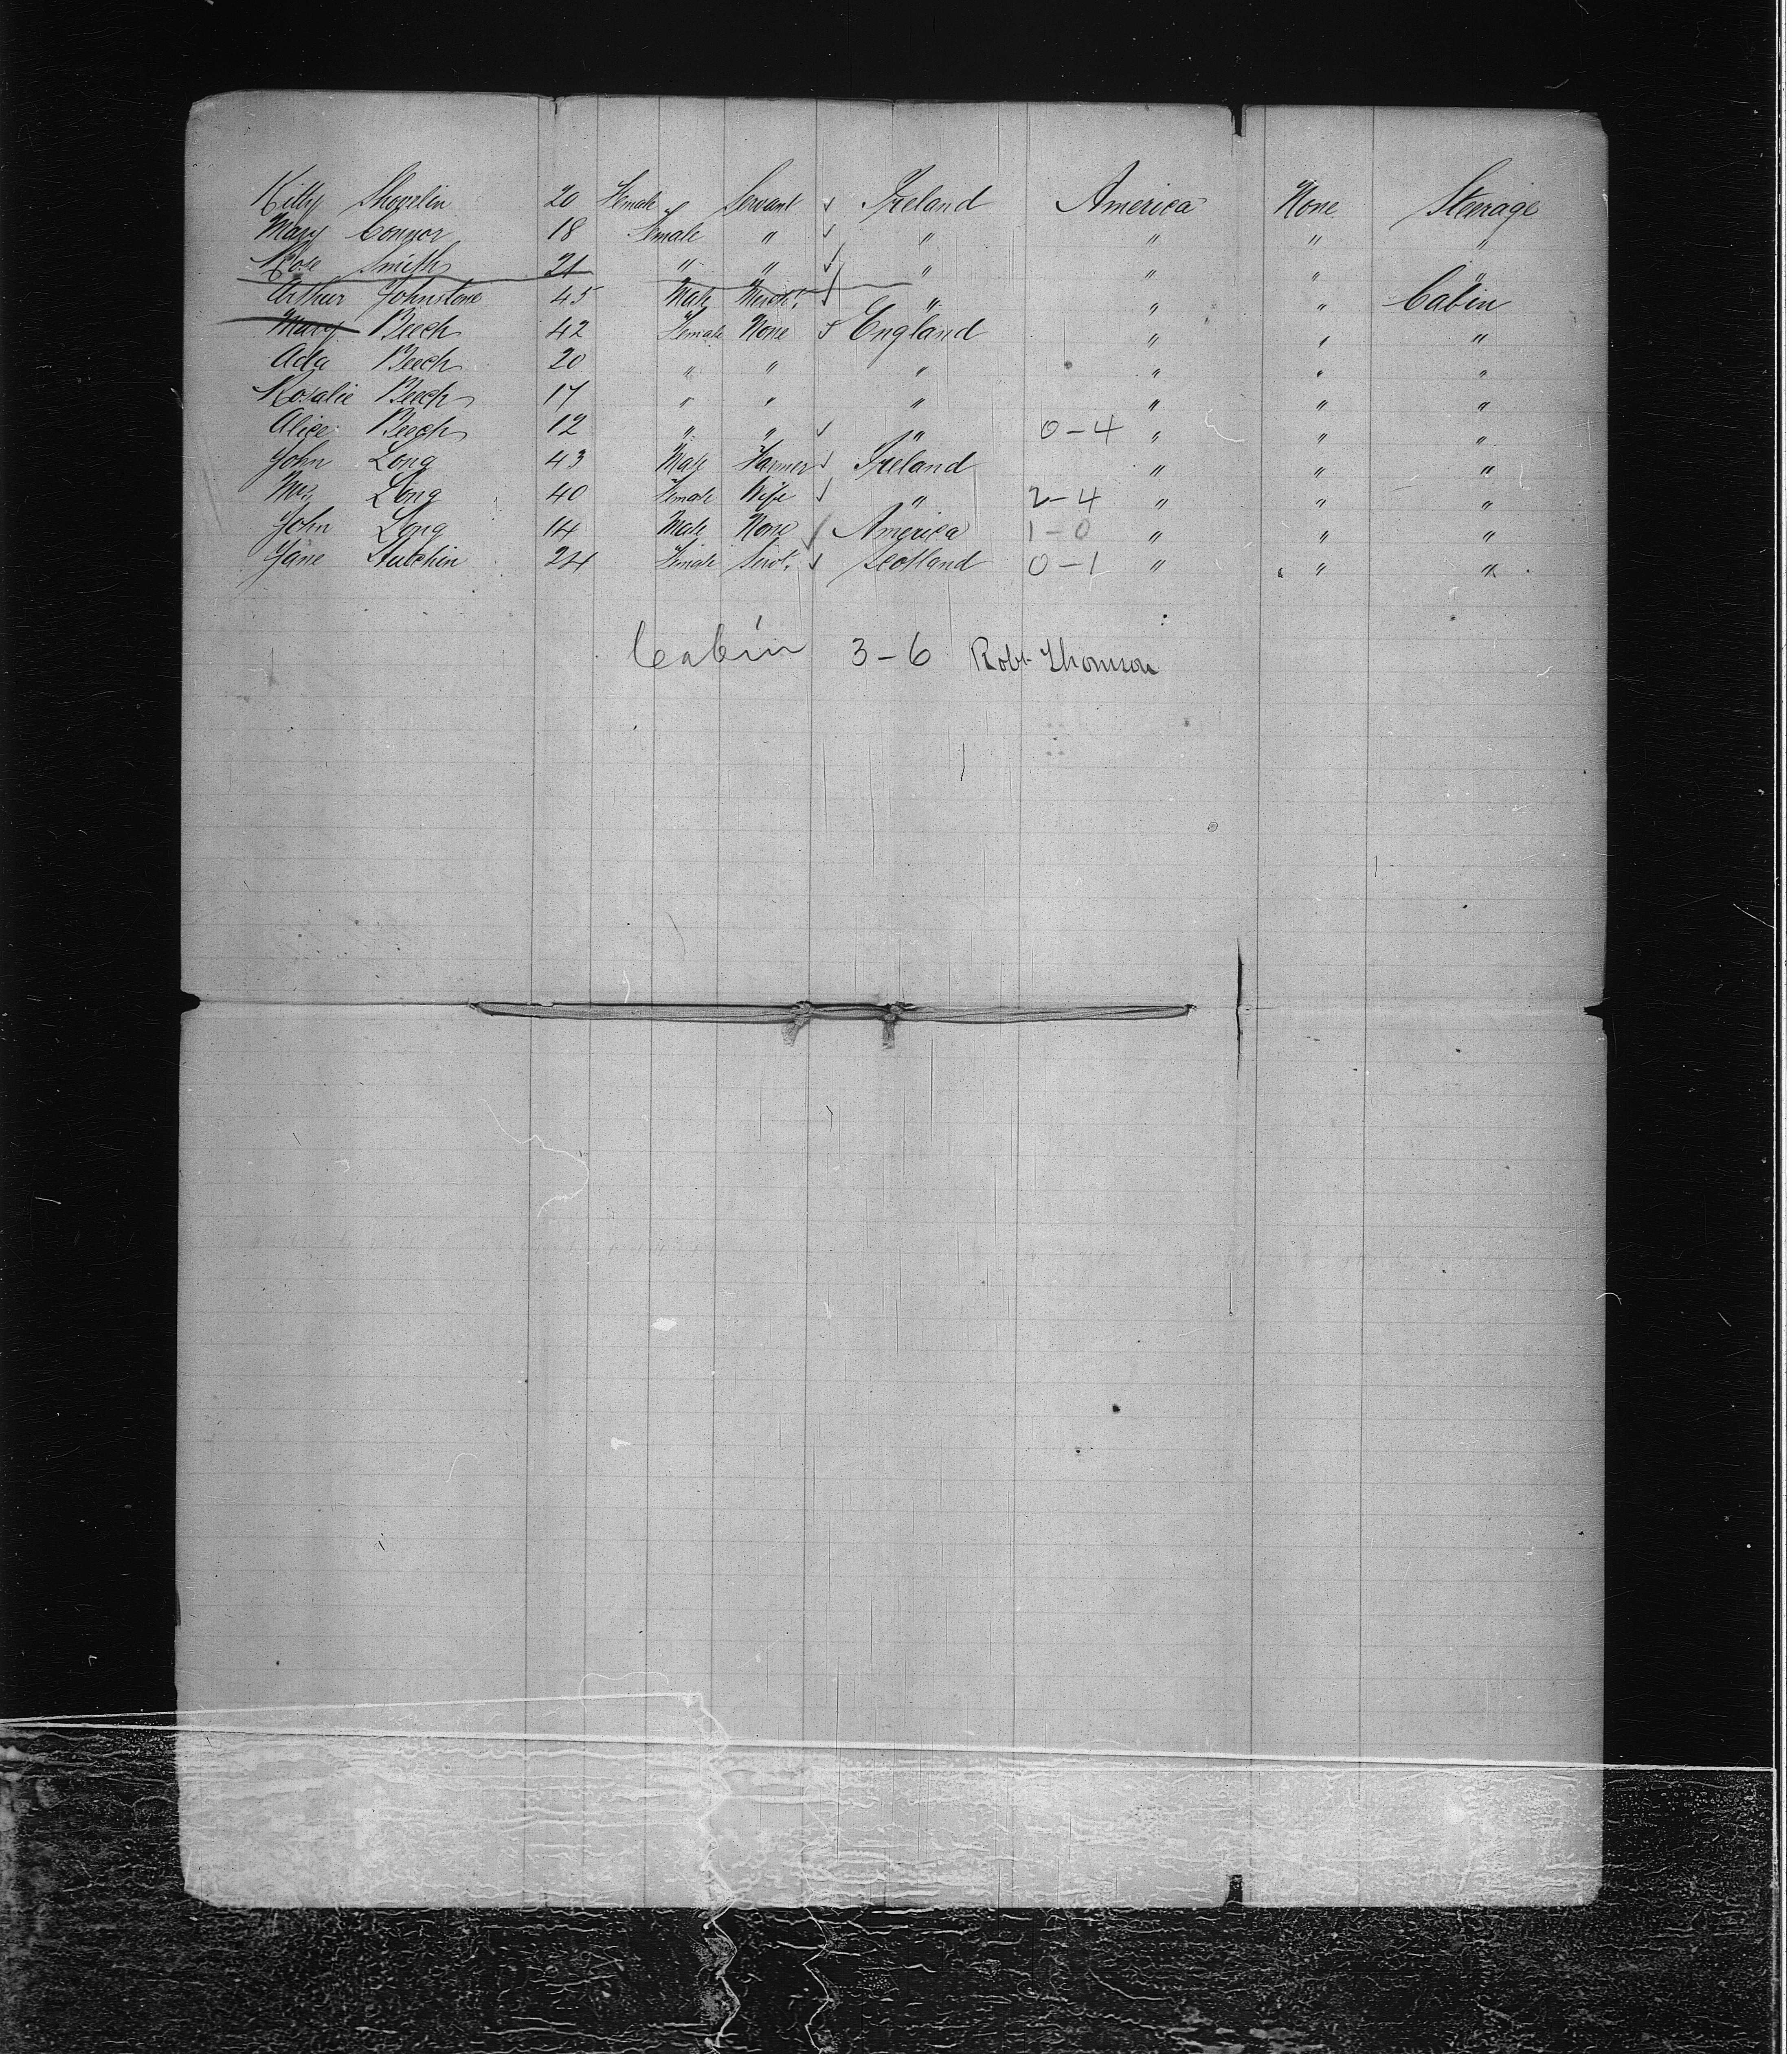 Kitty Shovelin 20 Female Servant ✓ Ireland America None Steerage
Mary Connor 18 Female " ✓ " " " "
Rose Smith 21 " " ✓ " " " "
Arthur Johnstone 45 Male Mercht. ✓ " " " Cabin
Mary Beech 42 Female None ✓ England " " "
Ada Beech 20 " " " " " "
Rosalie Beech 17 " " " " " "
Alice Beech 12 " " ✓ " 0-4 " " "
John Long 43 Male Farmer ✓ Ireland " " "
Mrs Long 40 Female Wife ✓ " 2-4 " " "
John Long 14 Male None ✓ America 1-0 " " "
Jane Hutchin 24 Female Servt. ✓ Scotland 0-1 " " "
Cabin 3-6 Robt Thomson